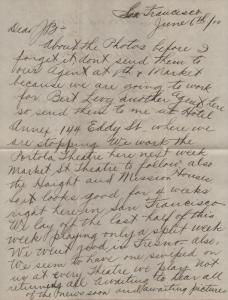 San Francisco
June 6th/10
Dear JB:-
About the Photos before I
forget it dont send them to
your Agent at 7th & Market
because we are going to work
for Bert Levy another Agent here
so send them to me at Hotel
Annex 144 Eddy St. where we
are stopping. We work the
Portola Theatre here next week
Market St Theatre to follow, also
the Haight and Mission Houses
so it looks good, for 4 weeks
right here in San Francisco
We lay off the last half of this
week playing only a split week
We went good in Fresno also.
We seem to have one swiped on
us at every Theatre we play. Not
returning all awaiting to hear all
of the news soon and awaiting pictures